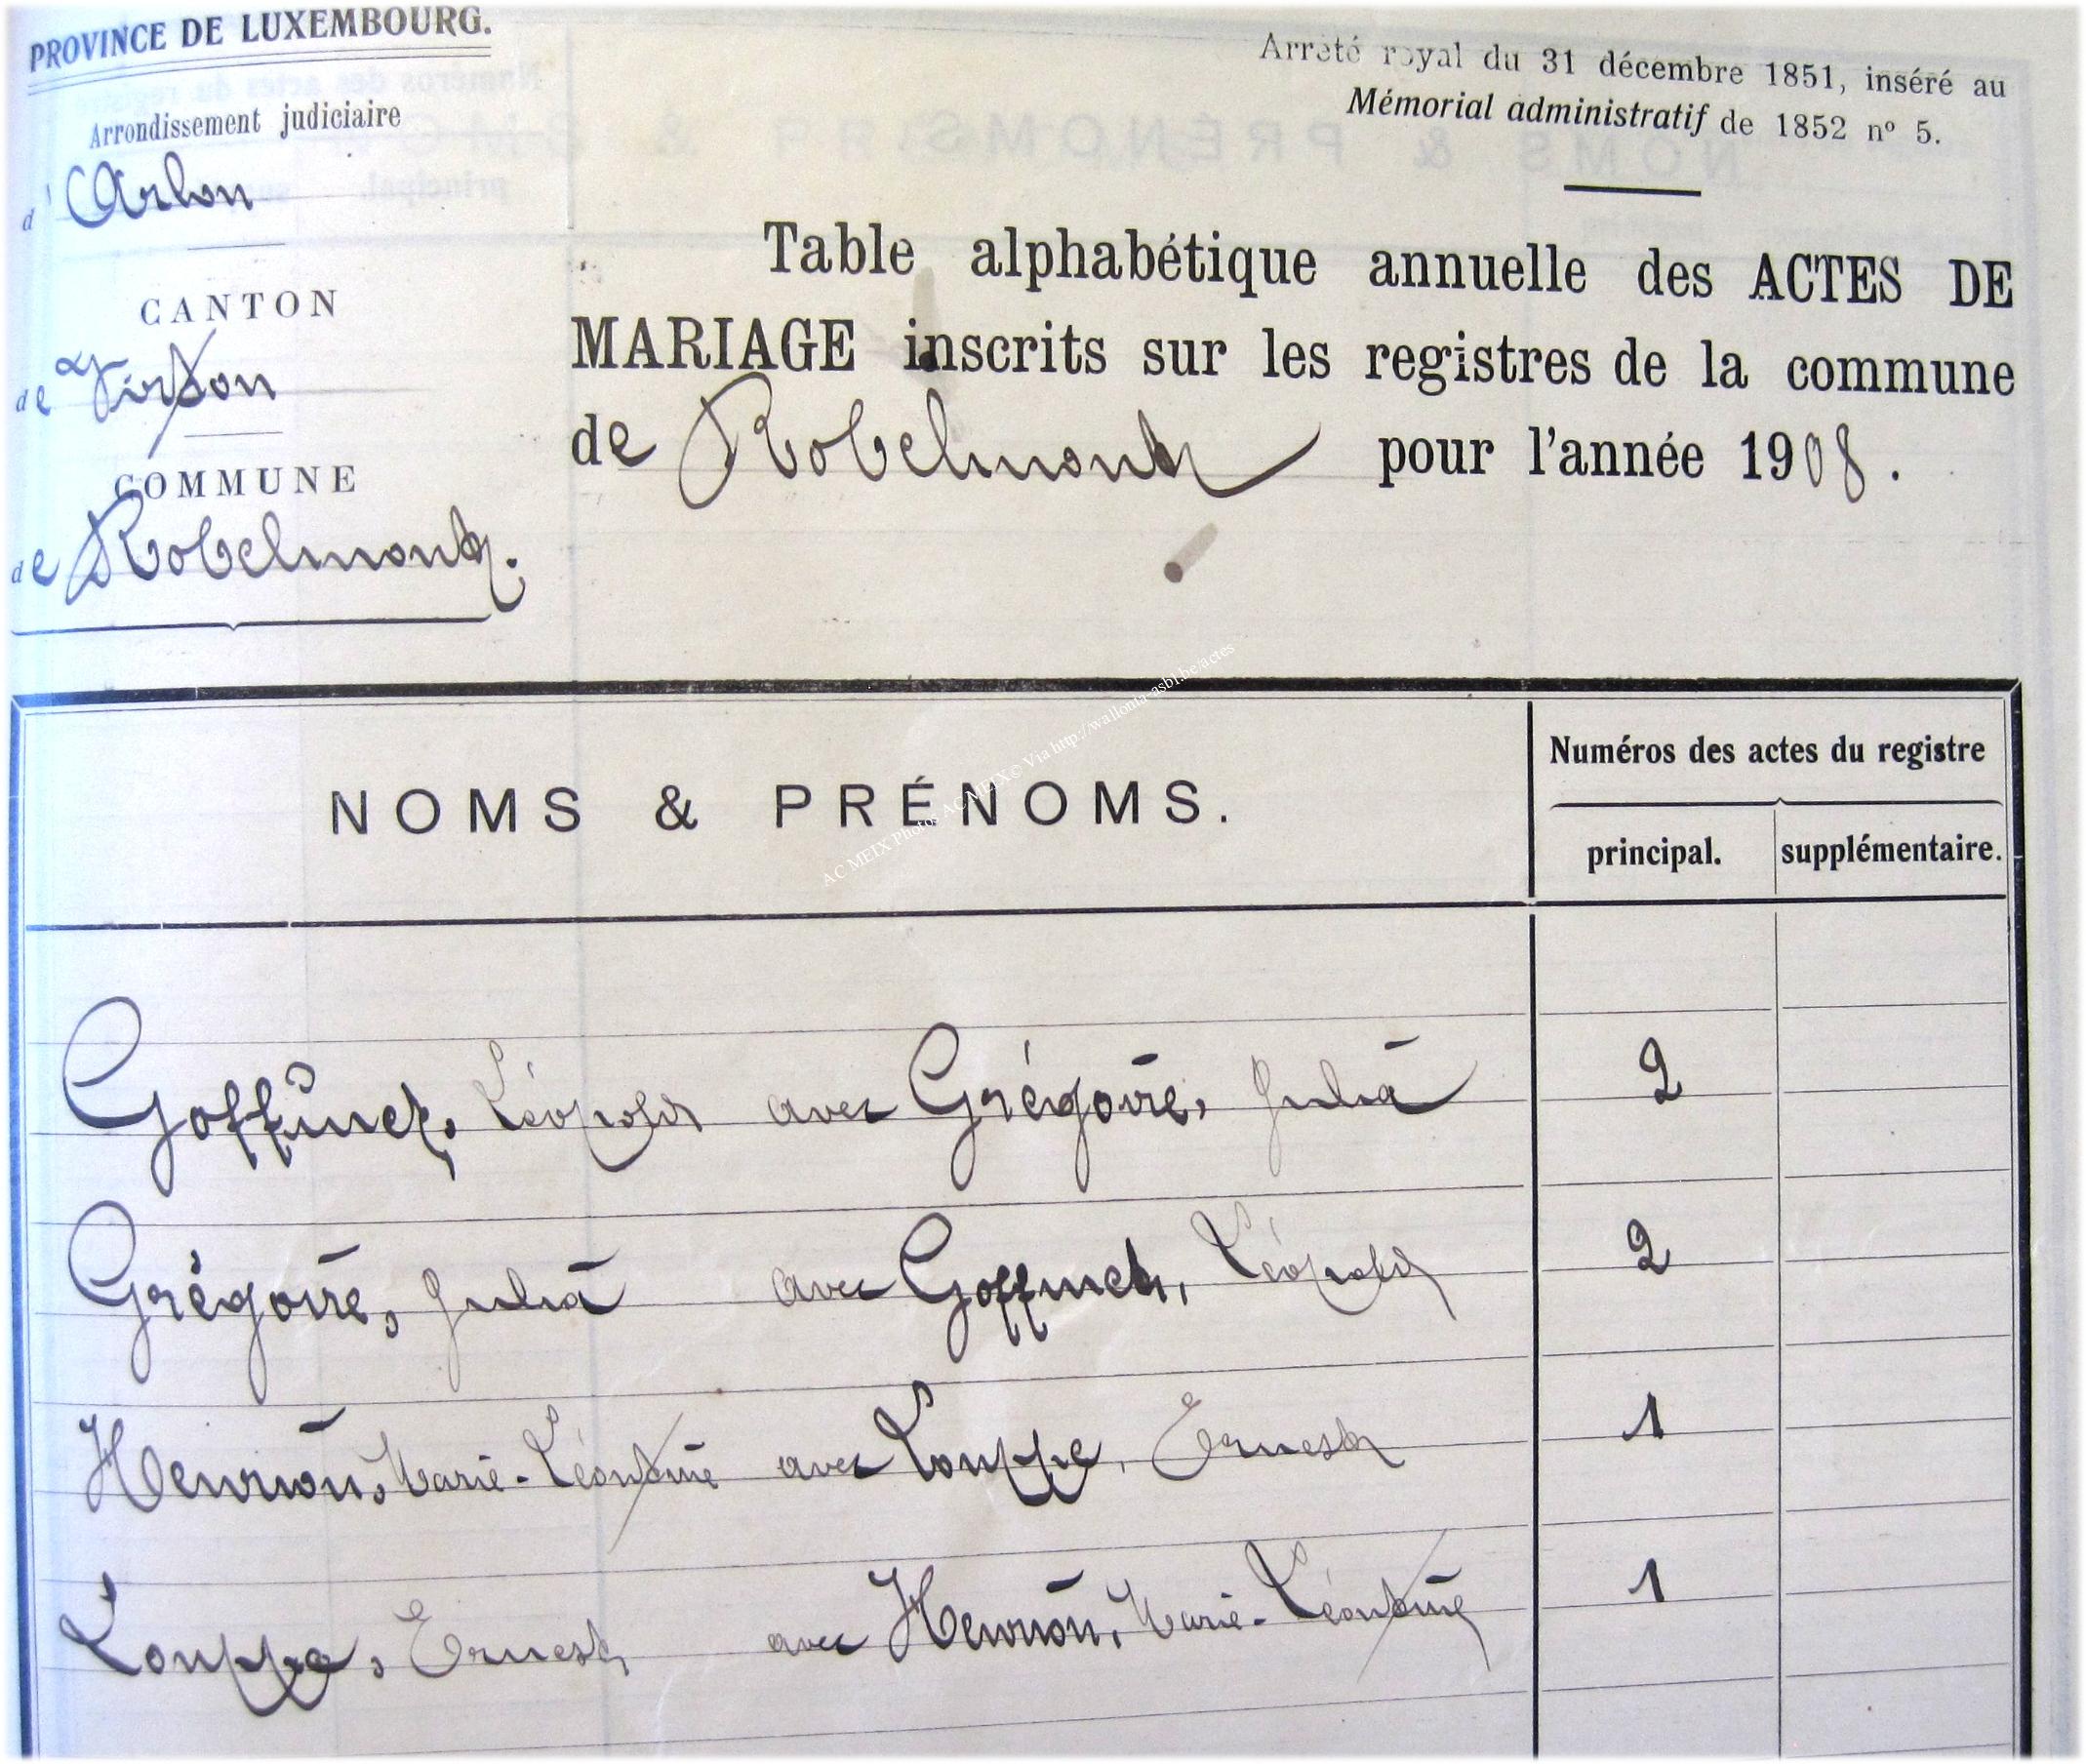 PROVINCE DE LUXEMBOURG.
Arrondissement judiciaire
d'Arlon
CANTON
de Virton
COMMUNE
de Robelmont.
Arrêté royal du 31 décembre 1851, inséré au
Mémorial administratif de 1852 nº 5.
Table alphabétique annuelle des ACTES DE
MARIAGE inscrits sur les registres de la commune
de Robelmont pour l'année 1908.
NOMS & PRÉNOMS.
Numéros des actes du registre
principal. supplémentaire.
AC MEIX Photos AC MEIX © Via http://wallonia-asbl.be/actes
Goffinet, Léopold avec Grégoire, Julia 2
Grégoire, Julia avec Goffinet, Léopold 2
Henrion, Marie-Léontine avec Louppe, Ernest 1
Louppe, Ernest avec Henrion, Marie-Léontine 1